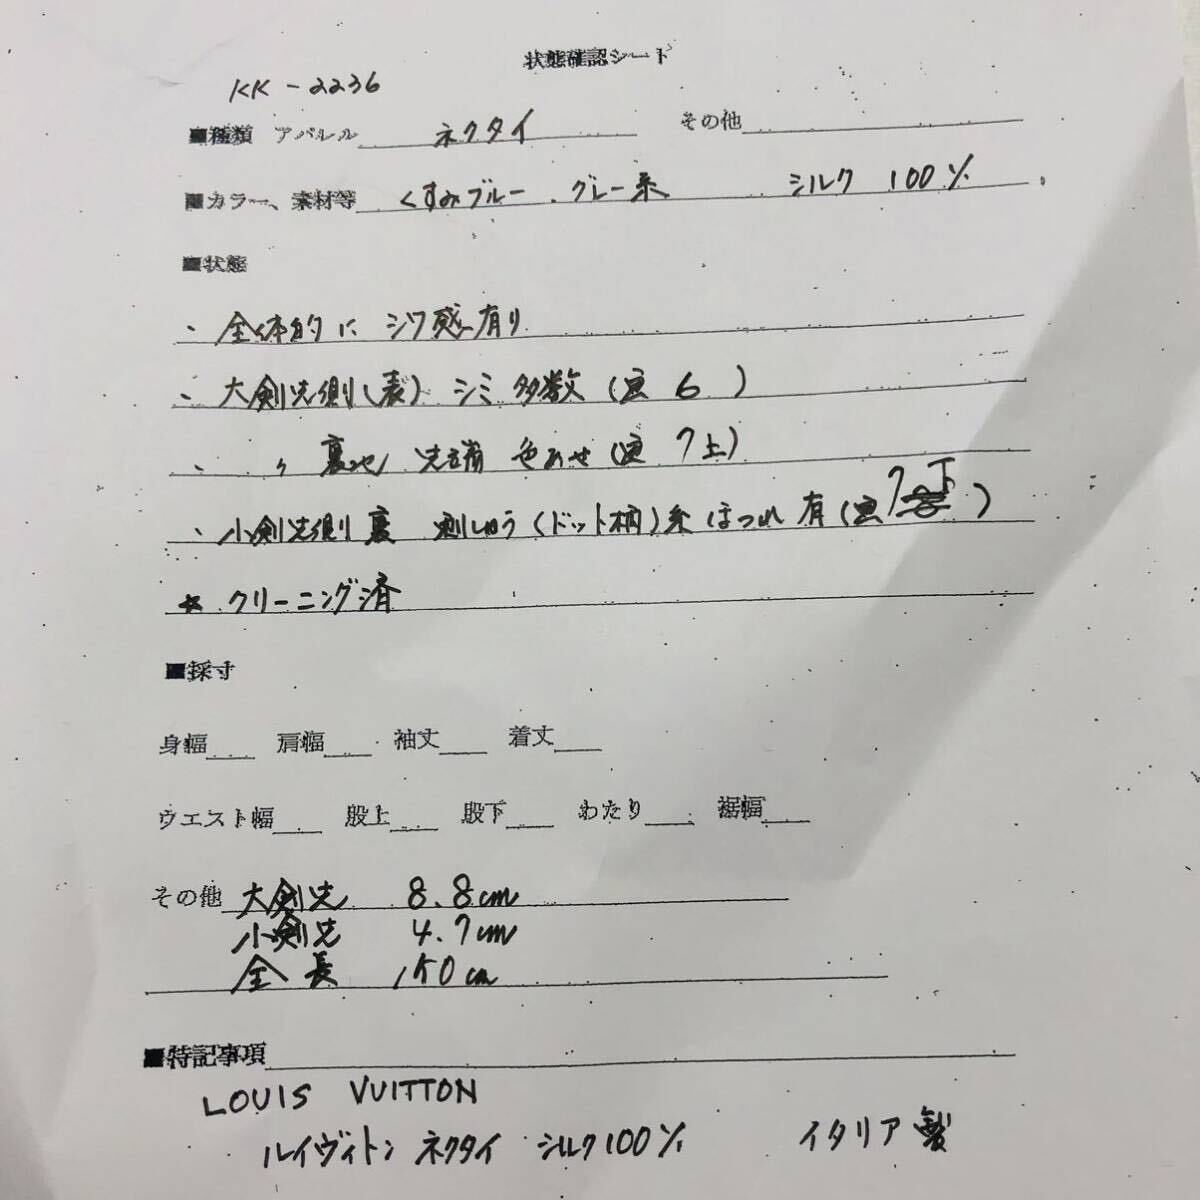 状態確認シート
KK-2236
■種類 アパレル ネクタイ その他
■カラー、素材等 くすみブルー、グレー系 シルク 100%
■状態
・全体的に シワ感有り
・大剣先側(表) シミ 多数 (画 6 )
・ 〃 裏地 先端 色あせ (画 7上)
・小剣先側 裏 刺しゅう(ドット柄)糸 ほつれ 有 (画 7下 )
☆ クリーニング済
■採寸
身幅 肩幅 袖丈 着丈
ウエスト幅 股上 股下 わたり 裾幅
その他 大剣先 8.8cm
小剣先 4.7cm
全長 150cm
■特記事項
LOUIS VUITTON
ルイヴィトン ネクタイ シルク100% イタリア製